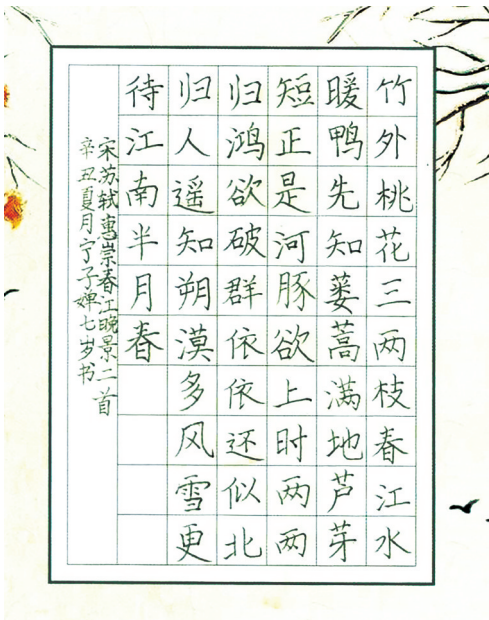 竹外桃花三两枝春江水
暖鸭先知蒌蒿满地芦芽
短正是河豚欲上时两两
归鸿欲破群依依还似北
归人遥知朔漠多风雪更
待江南半月春
宋苏轼惠崇春江晚景二首
辛丑夏月宁子婢七岁书